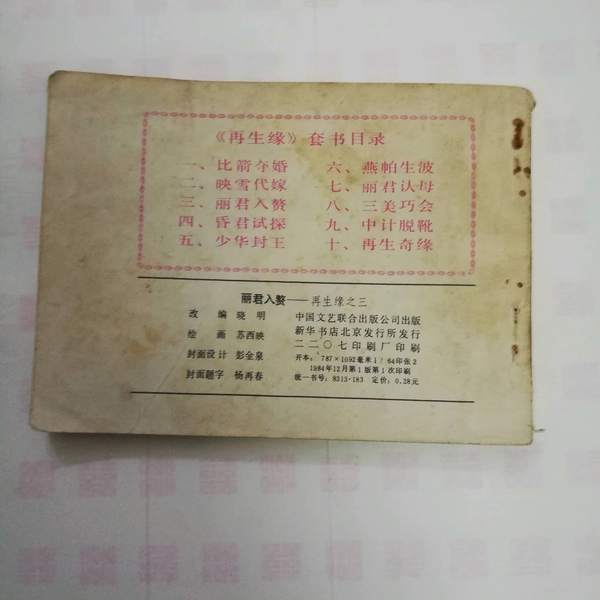 《再生缘》套书目录
一、比箭夺婚
二、映雪代嫁
三、丽君入赘
四、昏君试探
五、少华封王
六、燕帕生波
七、丽君认母
八、三美巧会
九、中计脱靴
十、再生奇缘
丽君入赘——再生缘之三
改 编 晓 明
绘 画 苏西映
封面设计 彭金泉
封面题字 杨再春
中国文艺联合出版公司出版
新华书店北京发行所发行
二二〇七印刷厂印刷
开本:787×1092毫米1/64印张2
1984年12月第1版第1次印刷
统一书号:8313·183 定价:0.28元